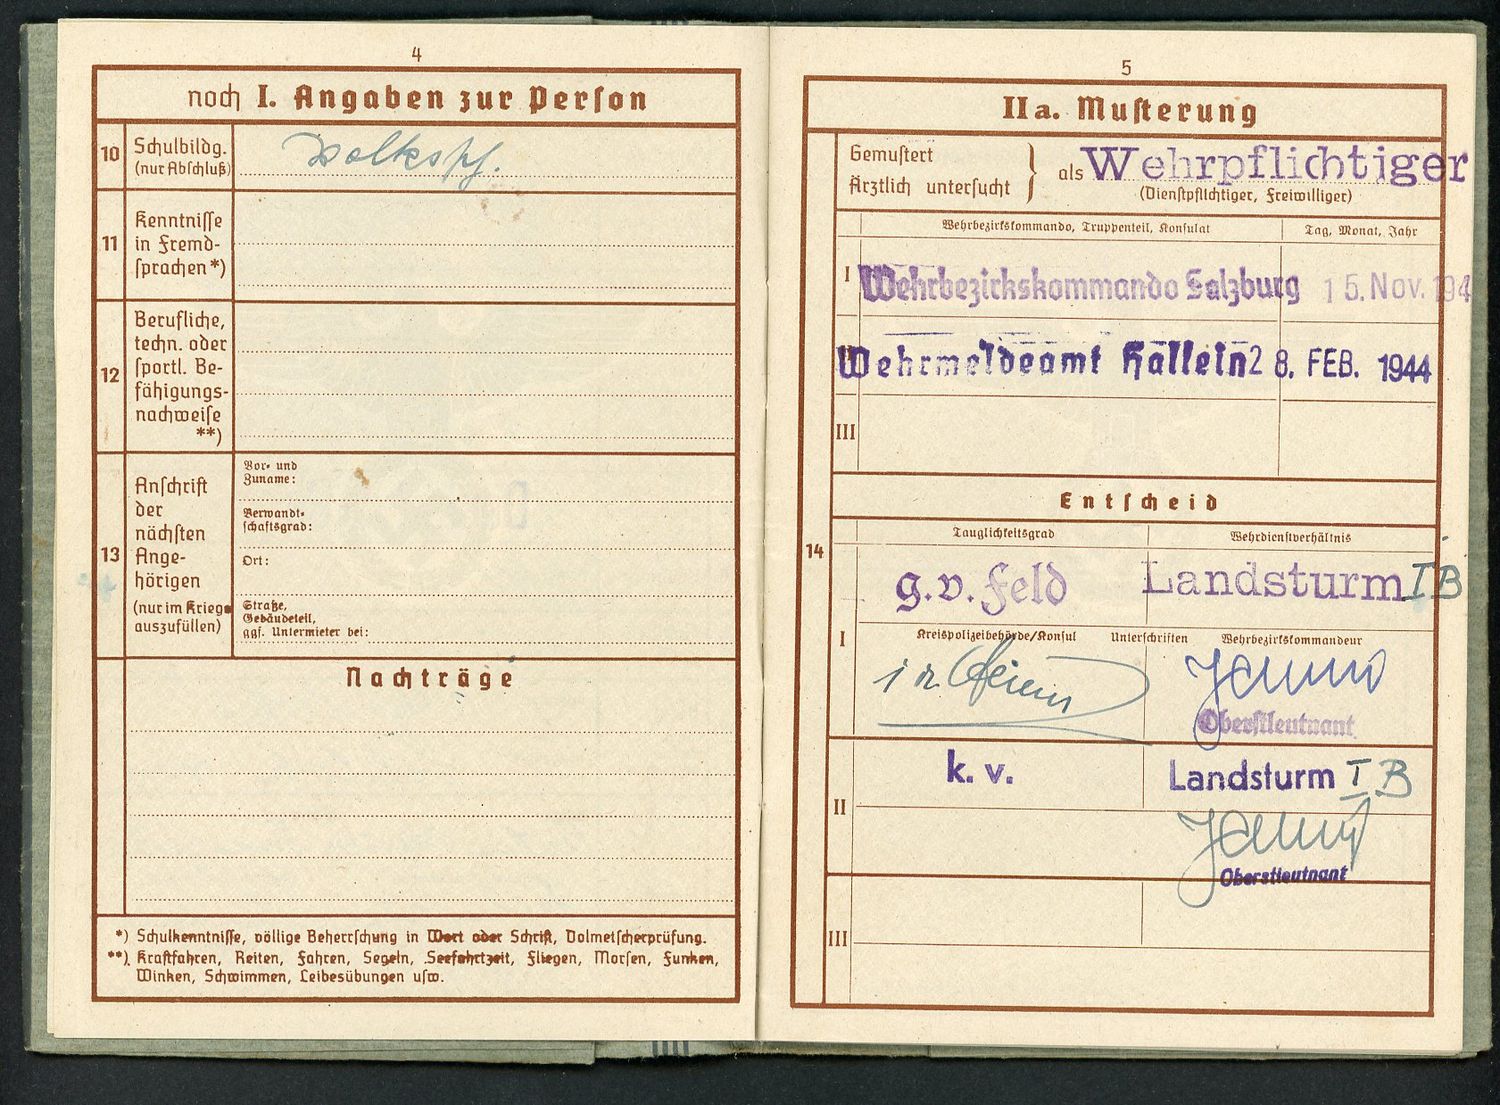 4
noch I. Angaben zur Person
10
Schulbildg.
(nur Abschluß)
Volkssch.
11
Kenntnisse
in Fremd-
sprachen *)
12
Berufliche,
techn. oder
sportl. Be-
fähigungs-
nachweise
**)
13
Anschrift
der
nächsten
Ange-
hörigen
(nur im Kriege
auszufüllen)
Vor- und
Zuname:
Verwandt-
schaftsgrad:
Ort:
Straße,
Gebäudeteil,
ggf. Untermieter bei:
Nachträge
*) Schulkenntnisse, völlige Beherrschung in Wort oder Schrift, Dolmetscherprüfung.
**) Kraftfahren, Reiten, Fahren, Segeln, Seefahrtzeit, Fliegen, Morsen, Funken,
Winken, Schwimmen, Leibesübungen usw.
5
IIa. Musterung
Gemustert
Ärztlich untersucht
als Wehrpflichtiger
(Dienstpflichtiger, Freiwilliger)
Wehrbezirkskommando, Truppenteil, Konsulat
Tag, Monat, Jahr
I
Wehrbezirkskommando Salzburg
15. Nov. 194
Wehrmeldeamt Hallein
28. FEB. 1944
III
Entscheid
14
Tauglichkeitsgrad
Wehrdienstverhältnis
g.v. Feld
Landsturm I B
I
Kreispolizeibehörde/Konsul
Unterschriften
Wehrbezirkskommandeur
Oberstleutnant
II
k. v.
Landsturm I B
Oberstleutnant
III